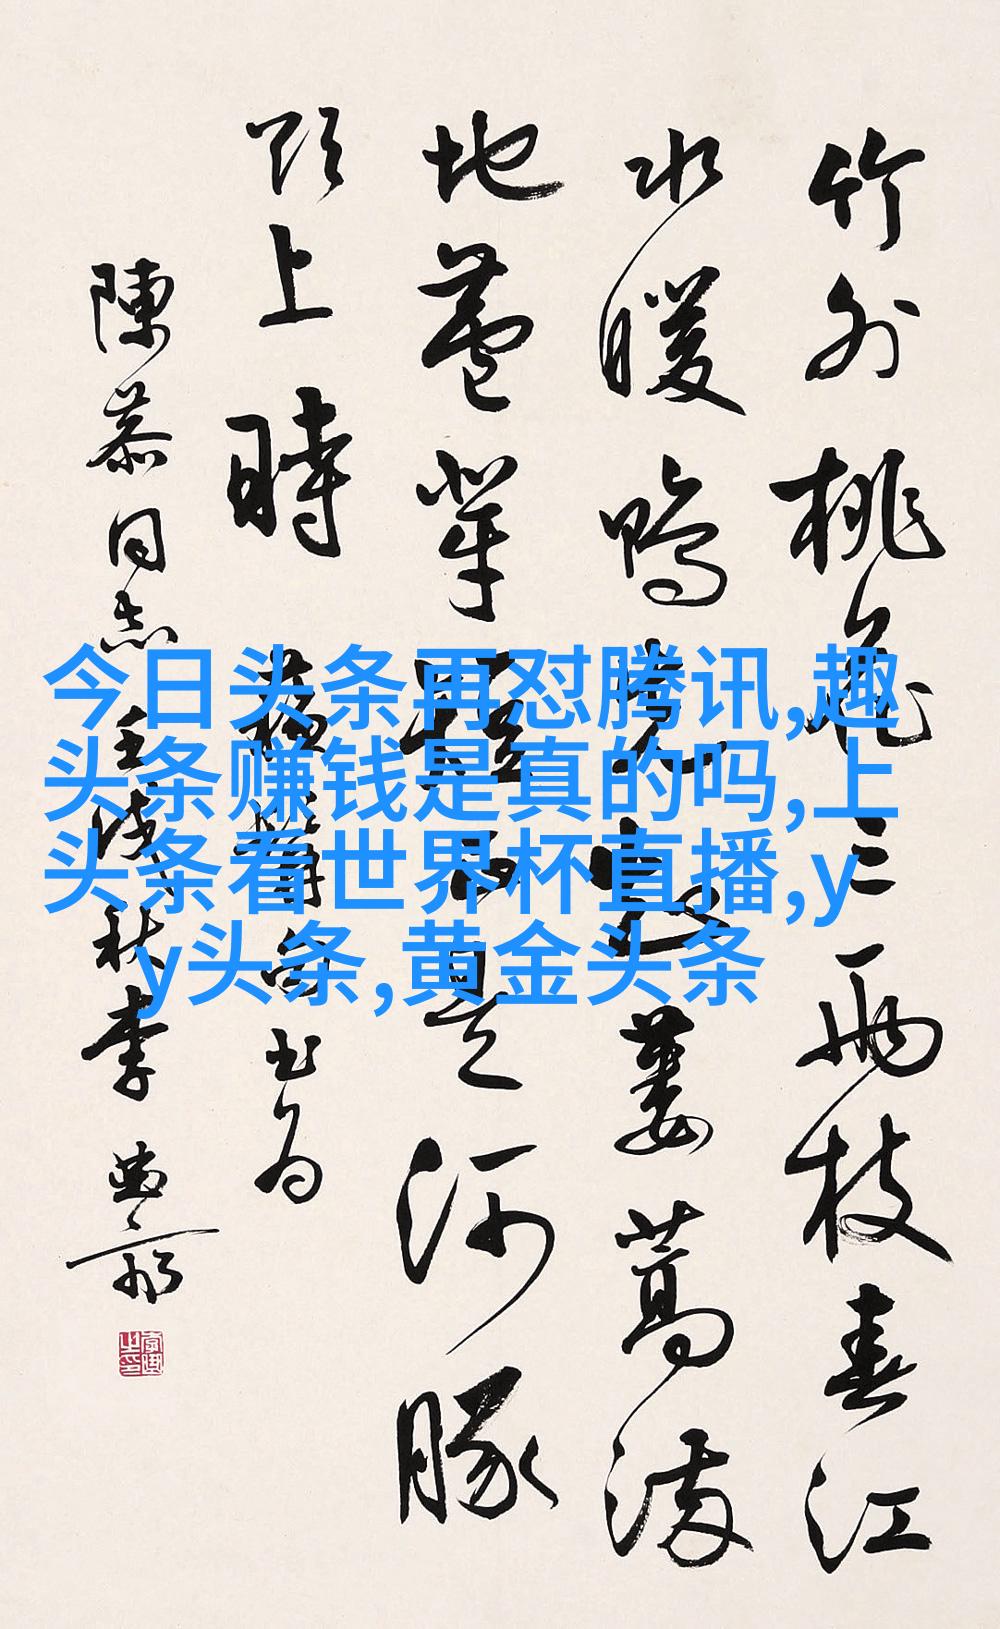 今日头条再怼腾讯,趣
头条赚钱是真的吗,上
头条看世界杯直播,y
y头条,黄金头条
竹外桃花三兩枝春江
水暖鴨先知蔞蒿滿
地蘆芽短正是河豚
欲上時
陳同志壬戌秋李